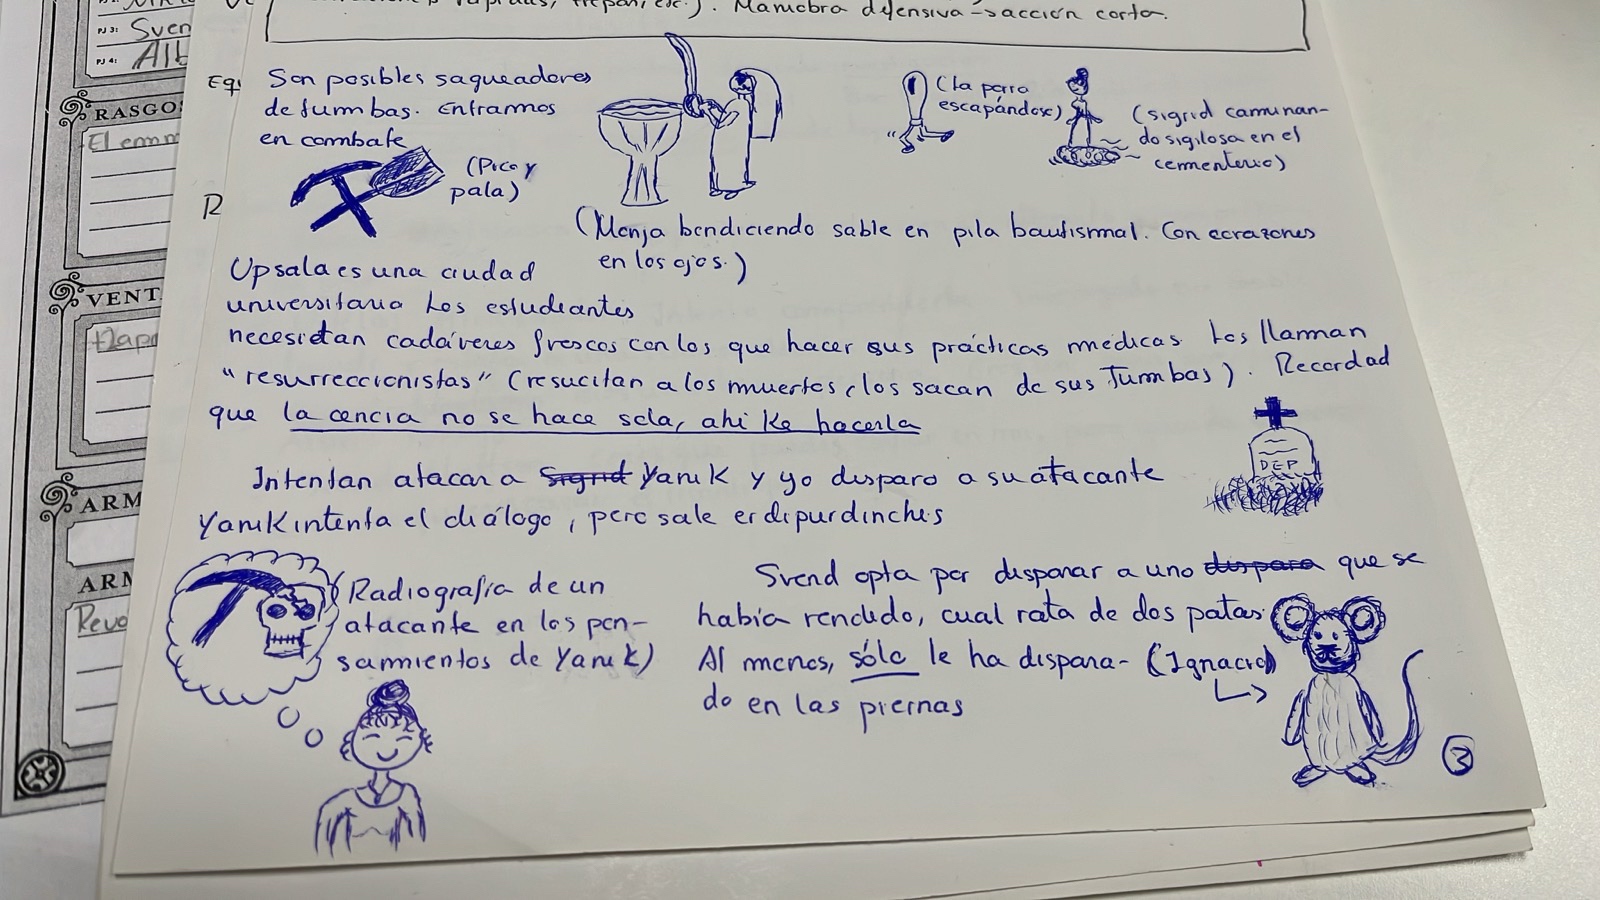 PJ 3: Sven
PJ 4: Alb
RASGO
El enm
VENT
ARM
ARM
Revo
rápidas, trepar, etc.). Maniobra defensiva → acción corta.
Equ
Son posibles saqueadores
de tumbas. Entramos
en combate
(Pico y
pala)
(la porra
escapándose)
(Sigrid caminan-
do sigilosa en el
cementerio)
(Monja bendiciendo sable en pila bautismal. Con corazones
en los ojos.)
R
Upsala es una ciudad
universitaria Los estudiantes
necesitan cadáveres frescos con los que hacer sus prácticas médicas. Los llaman
"resurreccionistas" (resucitan a los muertos, los sacan de sus tumbas). Recordad
que la cencia no se hace sola, ahi ke hacerla
DEP
Intentan atacar a Sigrid Yarik y yo disparo a su atacante
Yarik intenta el diálogo, pero sale erdipurdinchis
(Radiografía de un
atacante en los pen-
samientos de Yarik)
Svend opta por disparar a uno dispara que se
había rendido, cual rata de dos patas.
Al menos, sólo le ha dispara-
do en las piernas
(Ignacio)
3